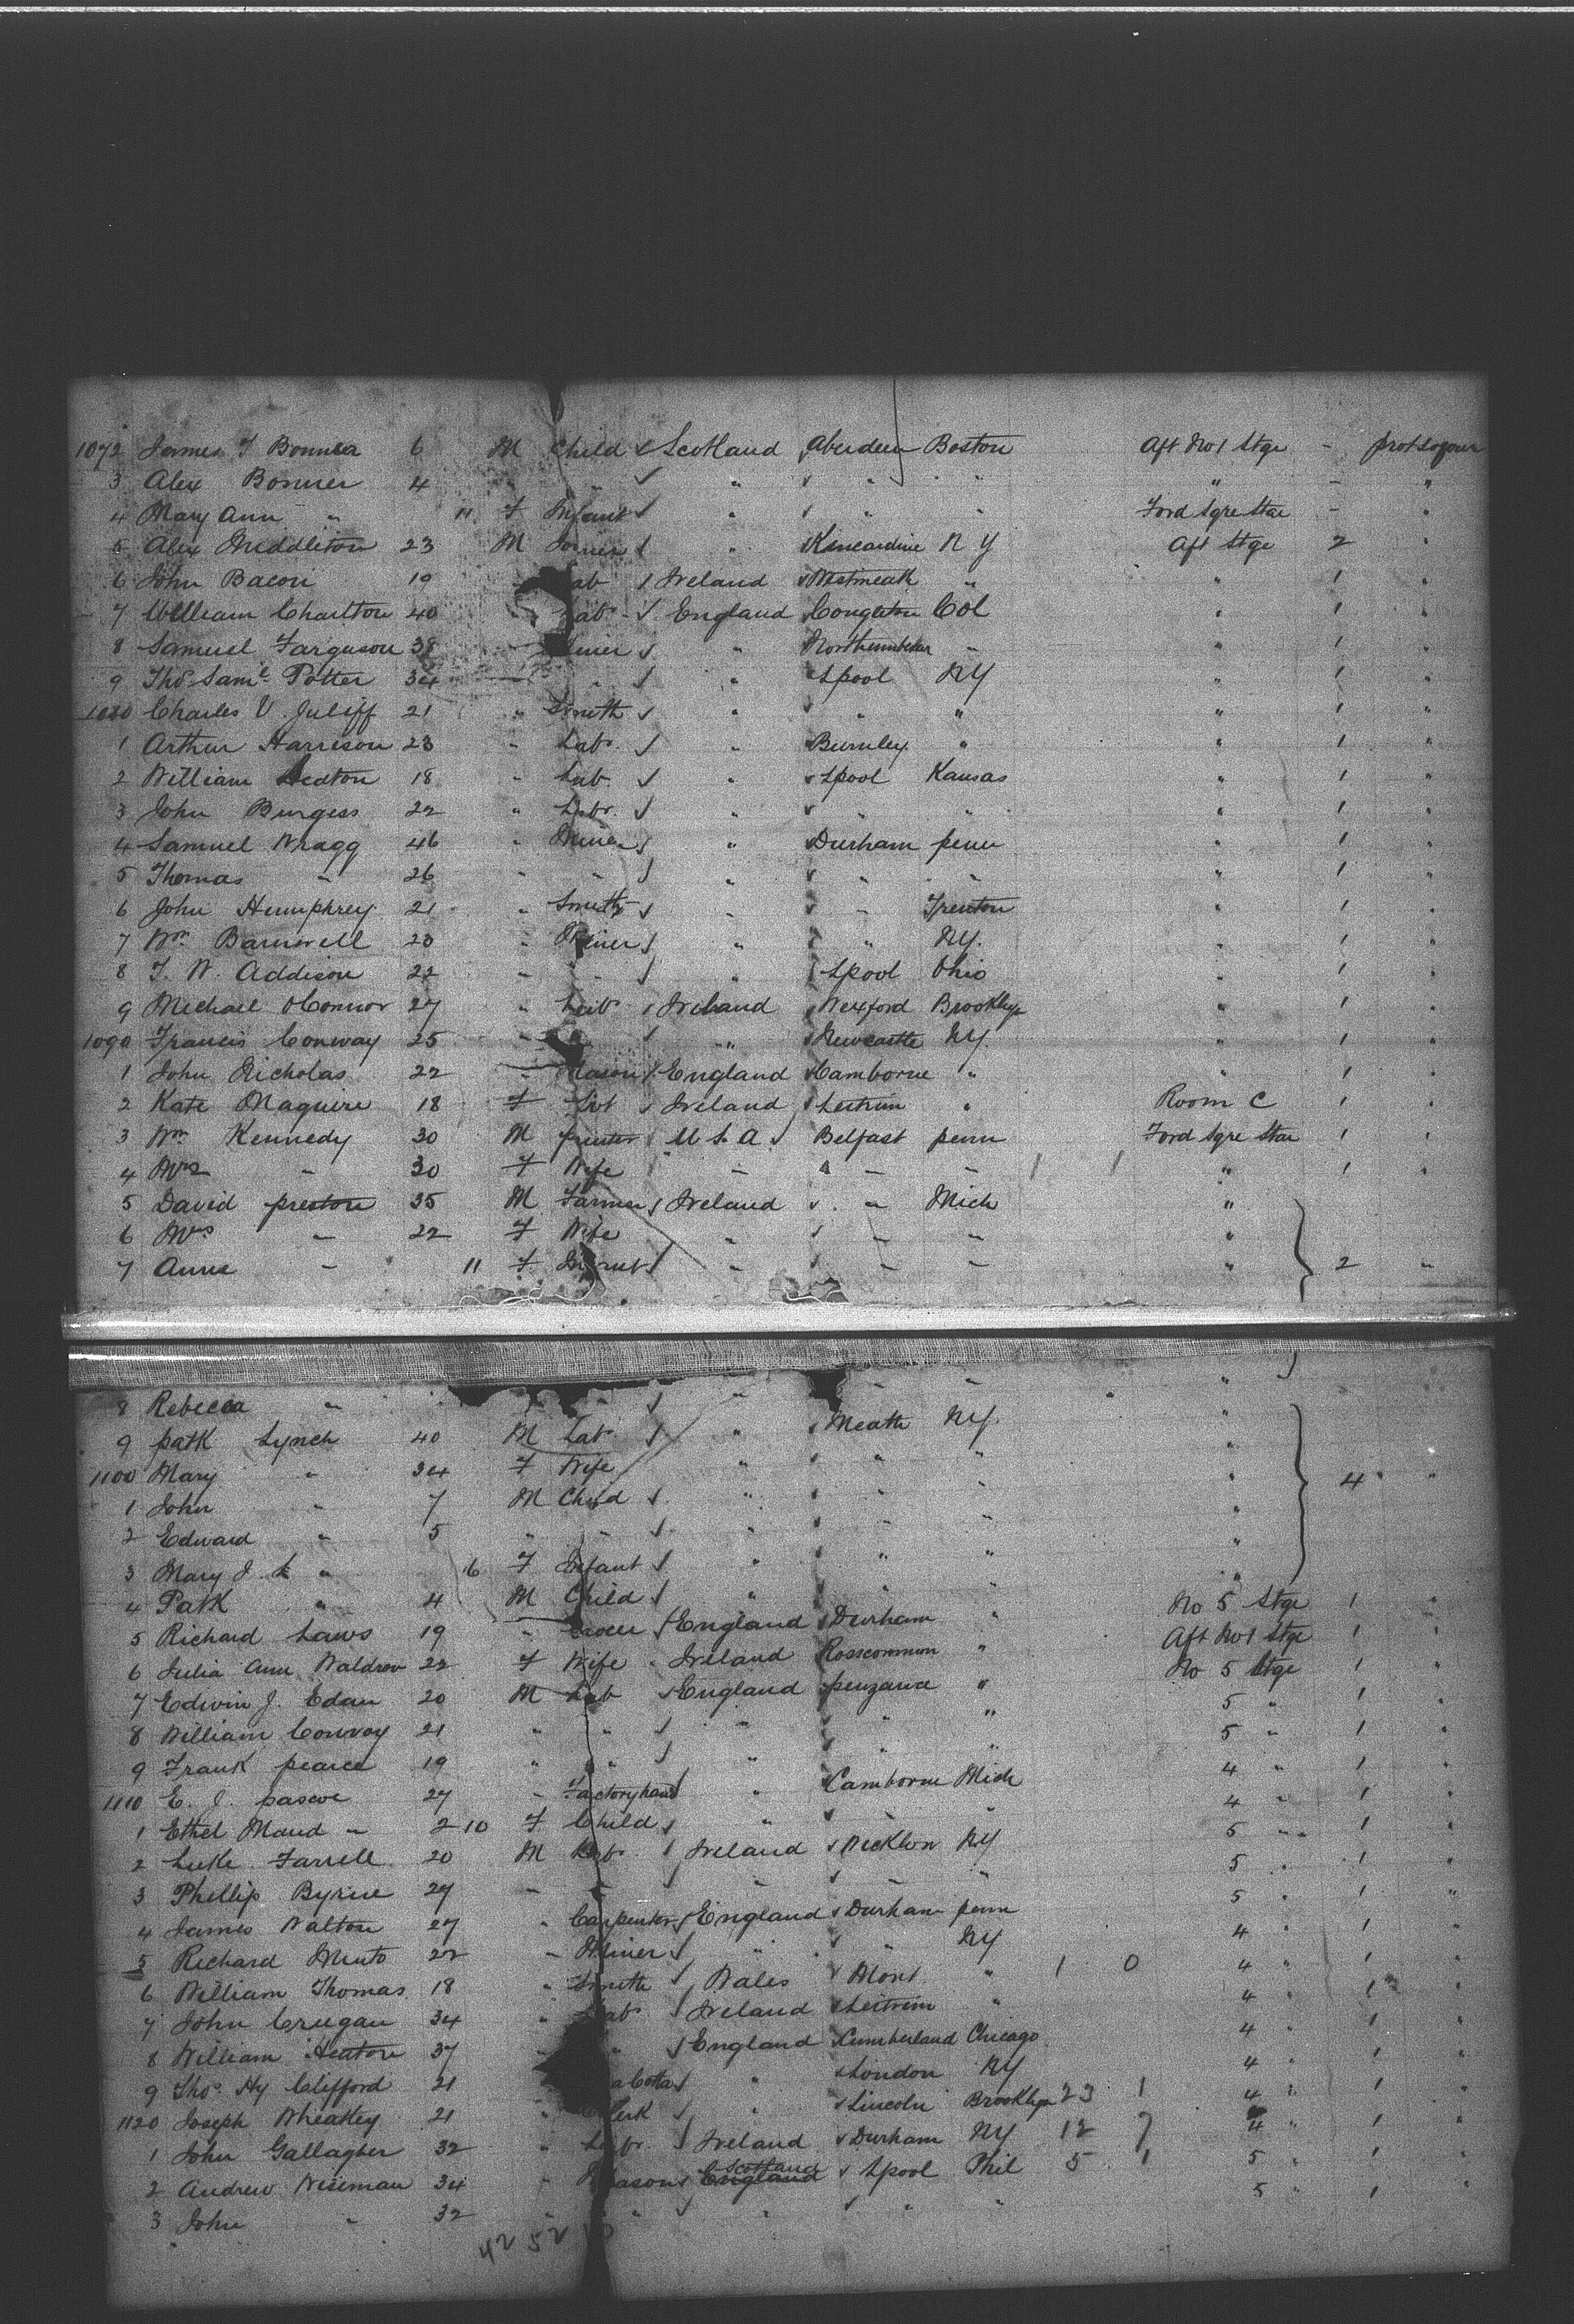 1072 James T Bonner 6 M Child Scotland Aberdeen Boston Aft No 1 Stge - prot sojour
3 Alex Bonner 4 " " " " " " - "
4 Mary Ann " 11 F Infant " " " Ford Sqre Stge - "
5 Alex Middleton 23 M Joiner " Kincardine N Y Aft Stge 2 "
6 John Bacon 19 " Lab Ireland Westmeath " " 1 "
7 William Charlton 40 " Lab England Congleton Col " 1 "
8 Samuel Farguson 38 " Miner " Northumber " " 1 "
9 Thos Saml Potter 34 " " " Lpool NY " 1 "
1080 Charles V. Juliff 21 " Smith " " " " 1 "
1 Arthur Harrison 23 " Lab. " Burnley " " 1 "
2 William Seaton 18 " Lab. " Lpool Kansas " 1 "
3 John Burgess 22 " Labr. " " " " 1 "
4 Samuel Wragg 46 " Miner " Durham penn " 1 "
5 Thomas " 26 " " " " " " 1 "
6 John Humphrey 21 " Smith " " Trenton " 1 "
7 Wm Barnwell 23 " Miner " " NY. " 1 "
8 T. W. Addison 22 " " " Lpool Ohio " 1 "
9 Michael OConnor 27 " Lab Ireland Wexford Brooklyn " 1 "
1090 Francis Conway 25 " " Newcastle NY. " 1 "
1 John Nicholas 22 " Mason England Camborne " " 1 "
2 Kate Maguire 18 F Svt Ireland Leitrim " Room C 1 "
3 Wm Kennedy 30 M printer U.S.A. Belfast penn Ford Sqre Stge 1 "
4 Mrs " 30 F Wife " " " 1 1 " 1 "
5 David preston 35 M Farmer Ireland " Mich "
6 Mrs " 22 F Wife " " " "
7 Anne " 11 F Infant " " " " 2 "
8 Rebecca " " " " " " "
9 patk Lynch 40 M Lab. " Meath NY. "
1100 Mary " 34 F Wife " " " " 4 "
1 John " 7 M Child " " " "
2 Edward " 5 " " " " " "
3 Mary J. " 6 F Infant " " " "
4 Patk " 4 M Child " " " "
5 Richard Laws 19 " England Durham " No 5 Stge 1 "
6 Julia Ann Waldron 22 F Wife Ireland Rosscommon " Aft No 1 Stge 1 "
7 Edwin J. Edan 20 M Lab England penzance " No 5 Stge 1 "
8 William Conroy 21 " " " " " 5 " 1 "
9 Frank pearce 19 " " " " " 5 " 1 "
1110 E. J. pascoe 27 " Factory hand " Camborne Mich 4 " 1 "
1 Ethel Maud " 2 10 F Child " " " 4 " 1 "
2 Luke Farrell 20 M Lab. Ireland Wicklow NY 5 " 1 "
3 Phillip Byrne 27 " " " " " 5 " 1 "
4 James Walton 27 " Carpenter England Durham penn 5 " 1 "
5 Richard Minto 22 " Miner " " NY 4 " 1 "
6 William Thomas 18 " Smith Wales Mont. " 1 0 4 " 1 "
7 John Cregan 34 " Lab Ireland Leitrim " 4 " 1 "
8 William Heaton 37 " " England Cumberland Chicago 4 " 1 "
9 Thos. Hy Clifford 21 " " London NY 4 " 1 "
1120 Joseph Wheatley 21 " Clerk " Lincoln Brooklyn 23 1 4 " 1 "
1 John Gallagher 32 " Labr. Ireland Durham NY 12 7 4 " 1 "
2 Andrew Wiseman 34 " Mason England Scotland Lpool Phil 5 1 5 " 1 "
3 John " 32 " " " " " 5 " 1 "
42 52